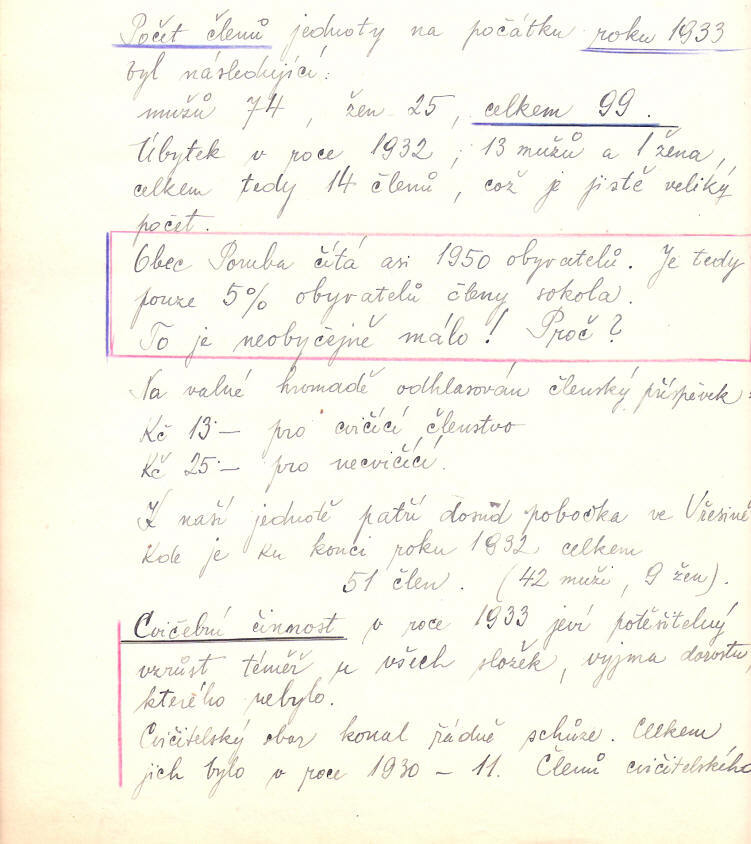 Počet členů jednoty na počátku roku 1933
byl následující:
mužů 74, žen 25, celkem 99.
Úbytek v roce 1932, 13 mužů a 1 žena,
celkem tedy 14 členů, což je jistě veliký
počet.
Obec Poruba čítá asi 1950 obyvatelů. Je tedy
pouze 5% obyvatelů členy sokola.
To je neobyčejně málo! Proč?
Na valné hromadě odhlasován členský příspěvek:
Kč 13- pro cvičící členstvo
Kč 25- pro necvičící.
K naší jednotě patří dosud pobočka ve Vřesině
kde je ku konci roku 1932 celkem
51 člen. (42 muži, 9 žen).
Cvičební činnost v roce 1933 jeví potěšitelný
vzrůst téměř u všech složek, vyjma dorostu,
kterého nebylo.
Cvičitelský sbor konal řádně schůze. Celkem
jich bylo v roce 1930 - 11. Členů cvičitelského